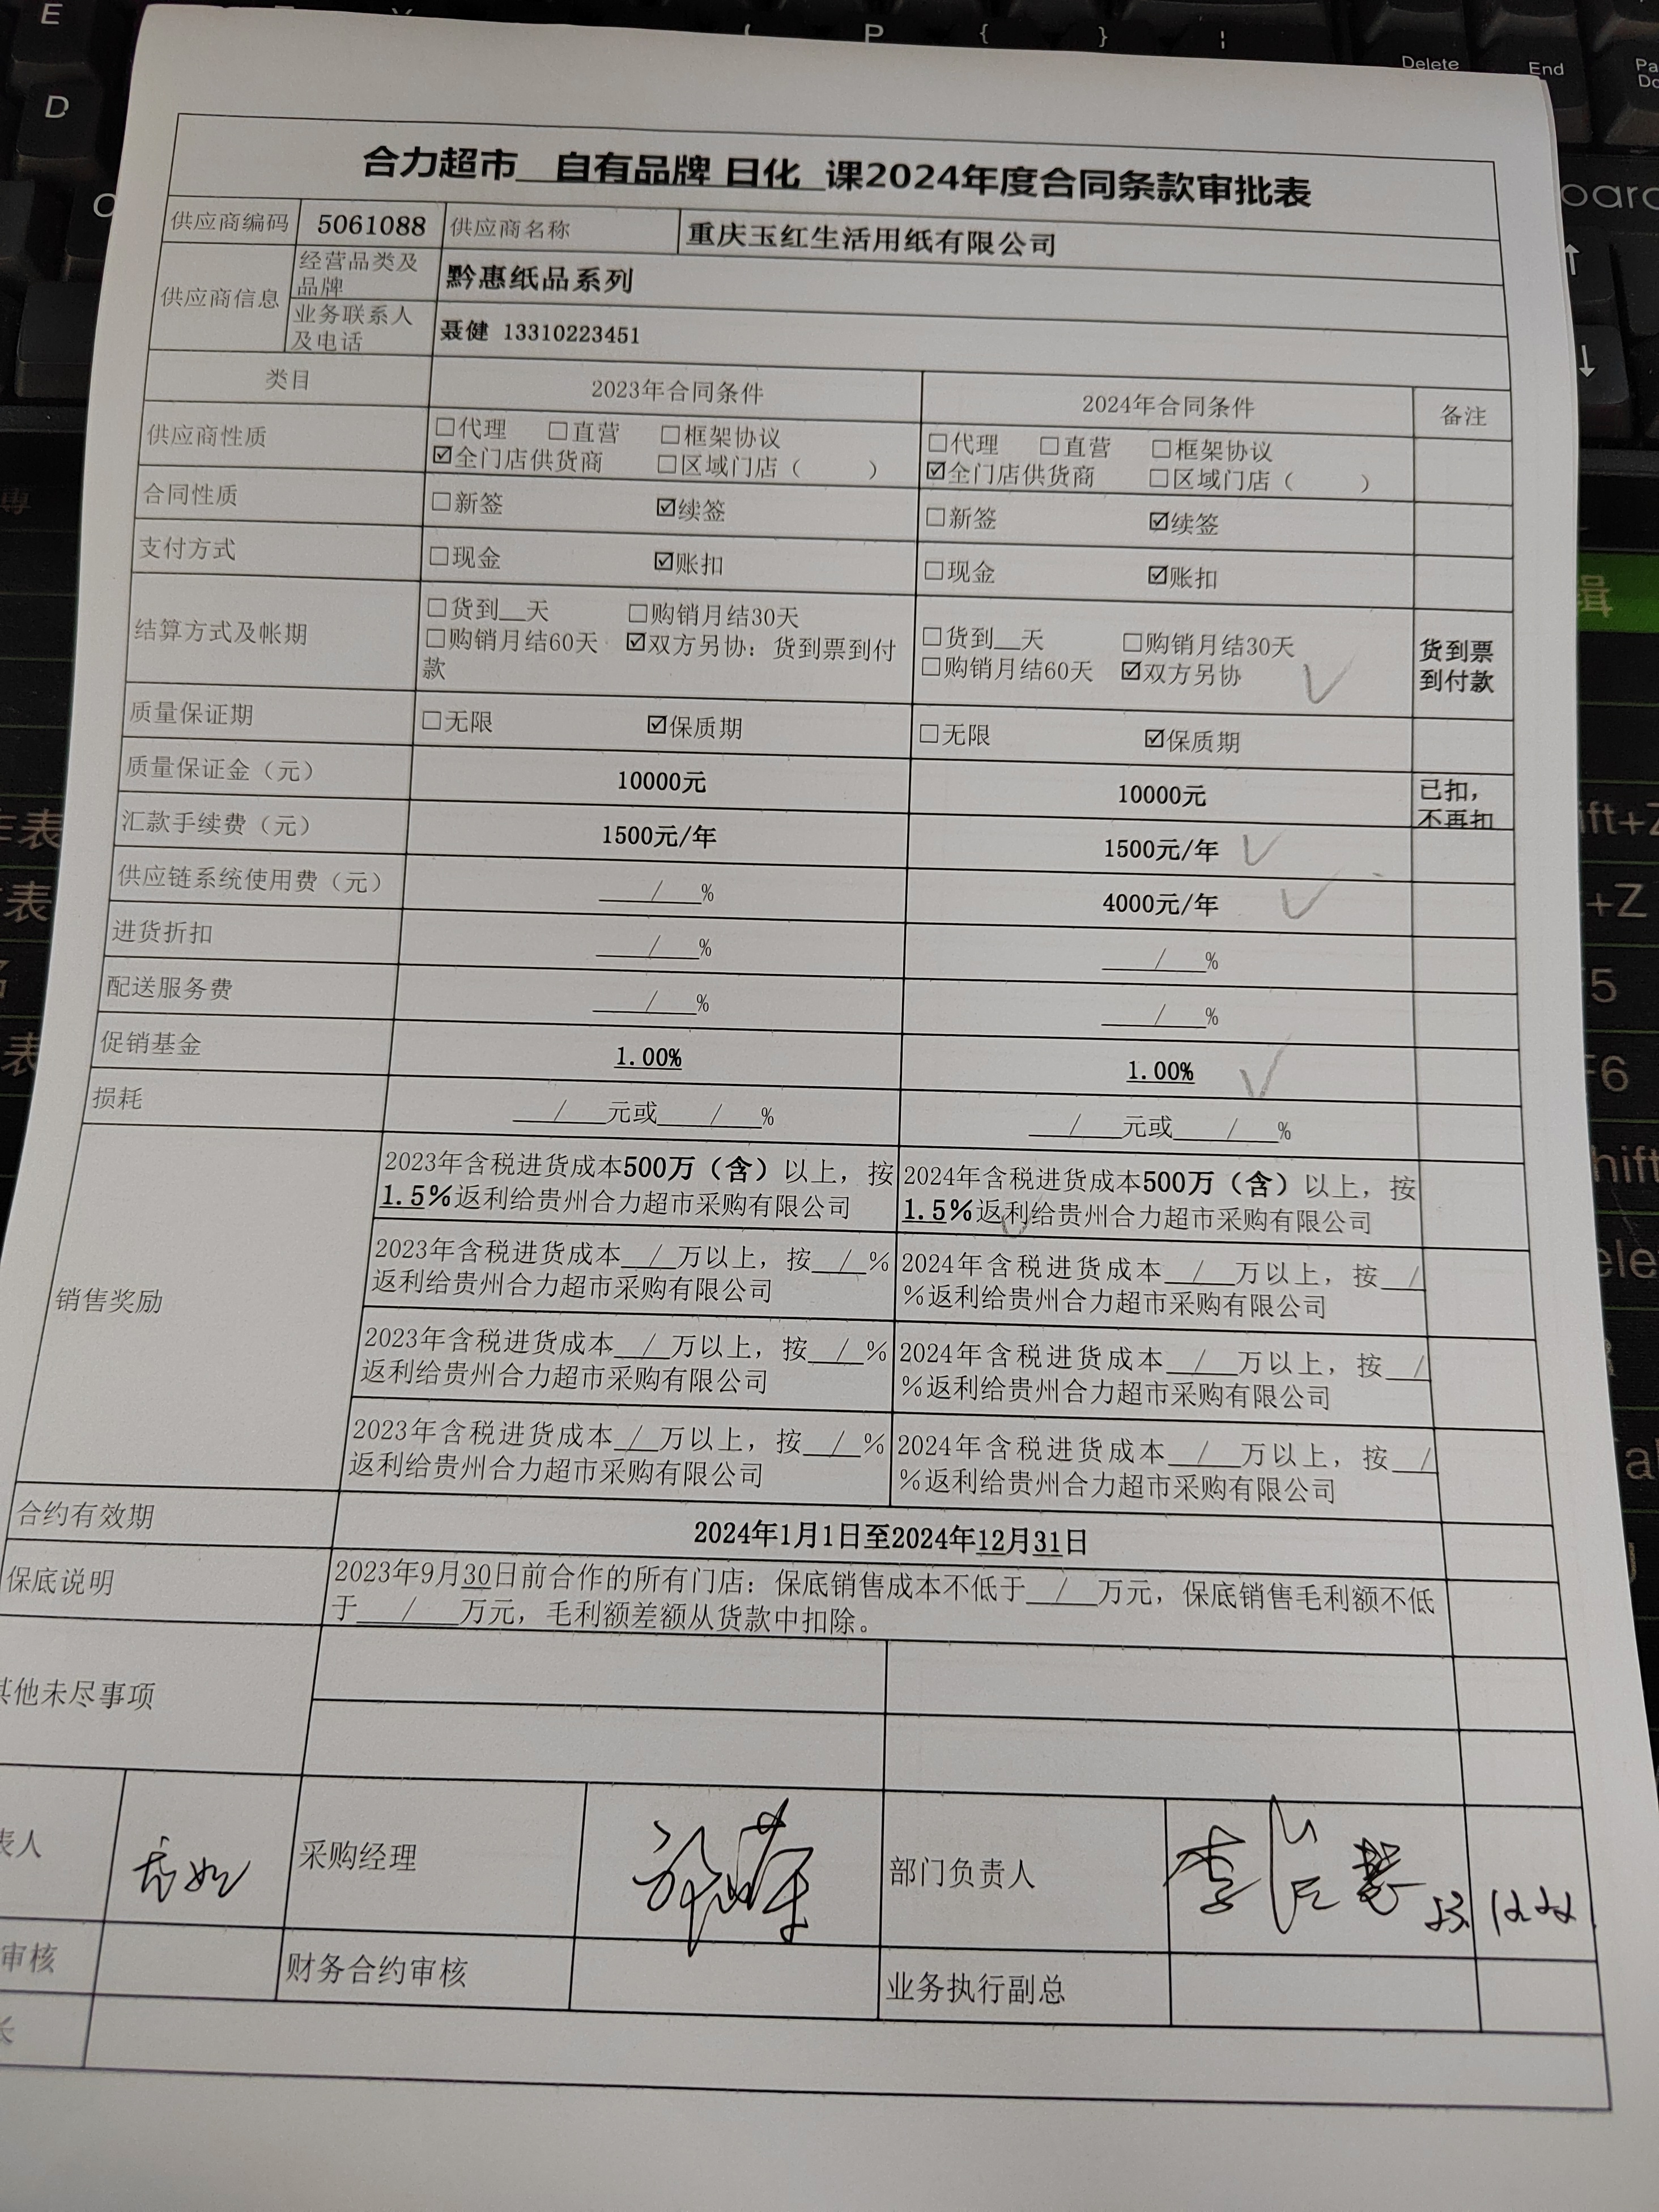 合力超市 自有品牌 日化 课2024年度合同条款审批表
供应商编码 5061088 供应商名称 重庆玉红生活用纸有限公司
供应商信息
经营品类及
品牌
黔惠纸品系列
业务联系人
及电话
聂健 13310223451
类目 2023年合同条件 2024年合同条件 备注
供应商性质
□代理 □直营 □框架协议
☑全门店供货商 □区域门店（ ）
□代理 □直营 □框架协议
☑全门店供货商 □区域门店（ ）
合同性质 □新签 ☑续签 □新签 ☑续签
支付方式 □现金 ☑账扣 □现金 ☑账扣
结算方式及帐期
□货到__天 □购销月结30天
□购销月结60天 ☑双方另协：货到票到付
款
□货到__天 □购销月结30天
□购销月结60天 ☑双方另协
货到票
到付款
质量保证期 □无限 ☑保质期 □无限 ☑保质期
质量保证金（元） 10000元 10000元
已扣，
不再扣
汇款手续费（元） 1500元/年 1500元/年
供应链系统使用费（元） __/__% 4000元/年
进货折扣 __/__% __/__%
配送服务费 __/__% __/__%
促销基金 1.00% 1.00%
损耗 __/__元或__/__% __/__元或__/__%
销售奖励
2023年含税进货成本500万（含）以上，按
1.5%返利给贵州合力超市采购有限公司
2024年含税进货成本500万（含）以上，按
1.5%返利给贵州合力超市采购有限公司
2023年含税进货成本__/__万以上，按__/__%
返利给贵州合力超市采购有限公司
2024年含税进货成本__/__万以上，按__/
%返利给贵州合力超市采购有限公司
2023年含税进货成本__/__万以上，按__/__%
返利给贵州合力超市采购有限公司
2024年含税进货成本__/__万以上，按__/
%返利给贵州合力超市采购有限公司
2023年含税进货成本__/__万以上，按__/__%
返利给贵州合力超市采购有限公司
2024年含税进货成本__/__万以上，按__/
%返利给贵州合力超市采购有限公司
合约有效期 2024年1月1日至2024年12月31日
保底说明
2023年9月30日前合作的所有门店：保底销售成本不低于__/__万元，保底销售毛利额不低
于__/__万元，毛利额差额从货款中扣除。
其他未尽事项
表人 采购经理 部门负责人
审核 财务合约审核 业务执行副总
长
E
P
{
}
D
Delete
End
↑
↓
+Z
F6